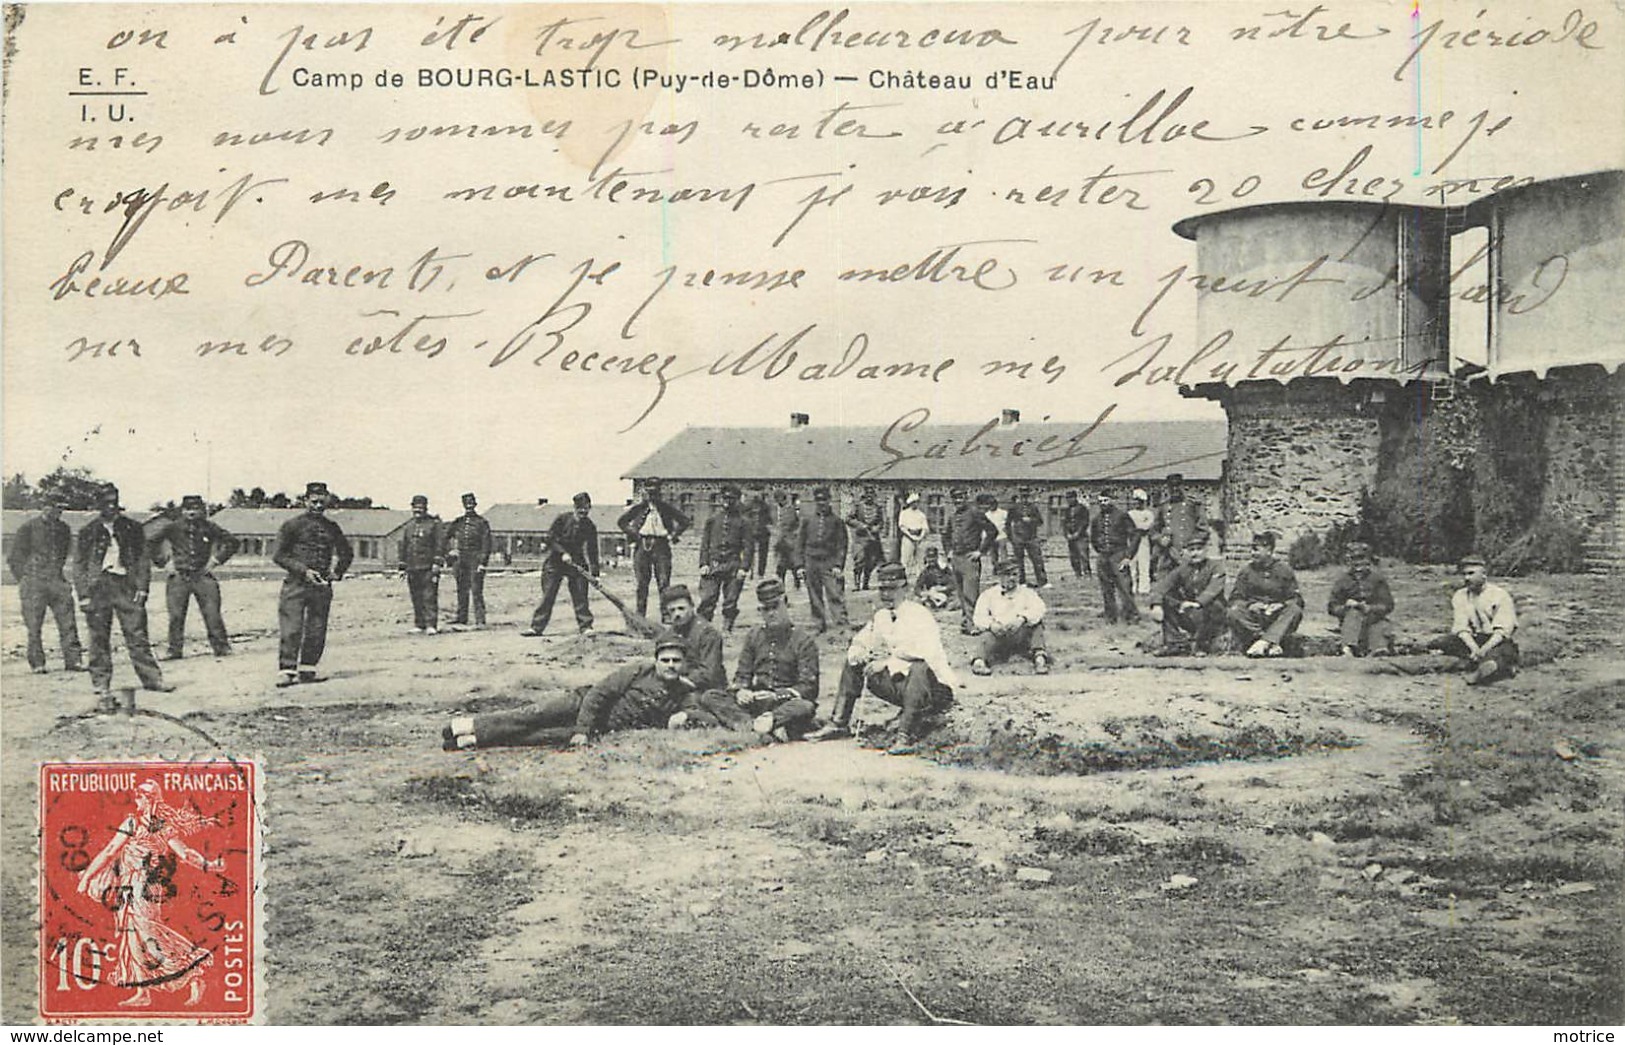 on à pas été trop malheureux pour nôtre période
E. F.
I. U.
Camp de BOURG-LASTIC (Puy-de-Dôme) — Château d'Eau
mes nous sommes pas rester a aurillac comme je
croyait. mes maintenant je vais rester 20 chez mes
beaux Parents, et je pense mettre un peut de lard
sur mes côtes. Recevez Madame mes Salutations
Gabriel
REPUBLIQUE FRANÇAISE
10c
POSTES
09
motrice